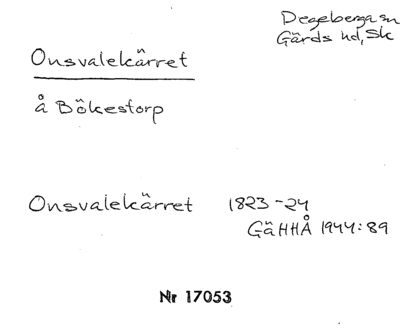 Degeberga sn
Gärds hd, Sk
Onsvalekärret
å Bökestorp
Onsvalekärret 1823-24
GäHHÅ 1944:89
Nr 17053